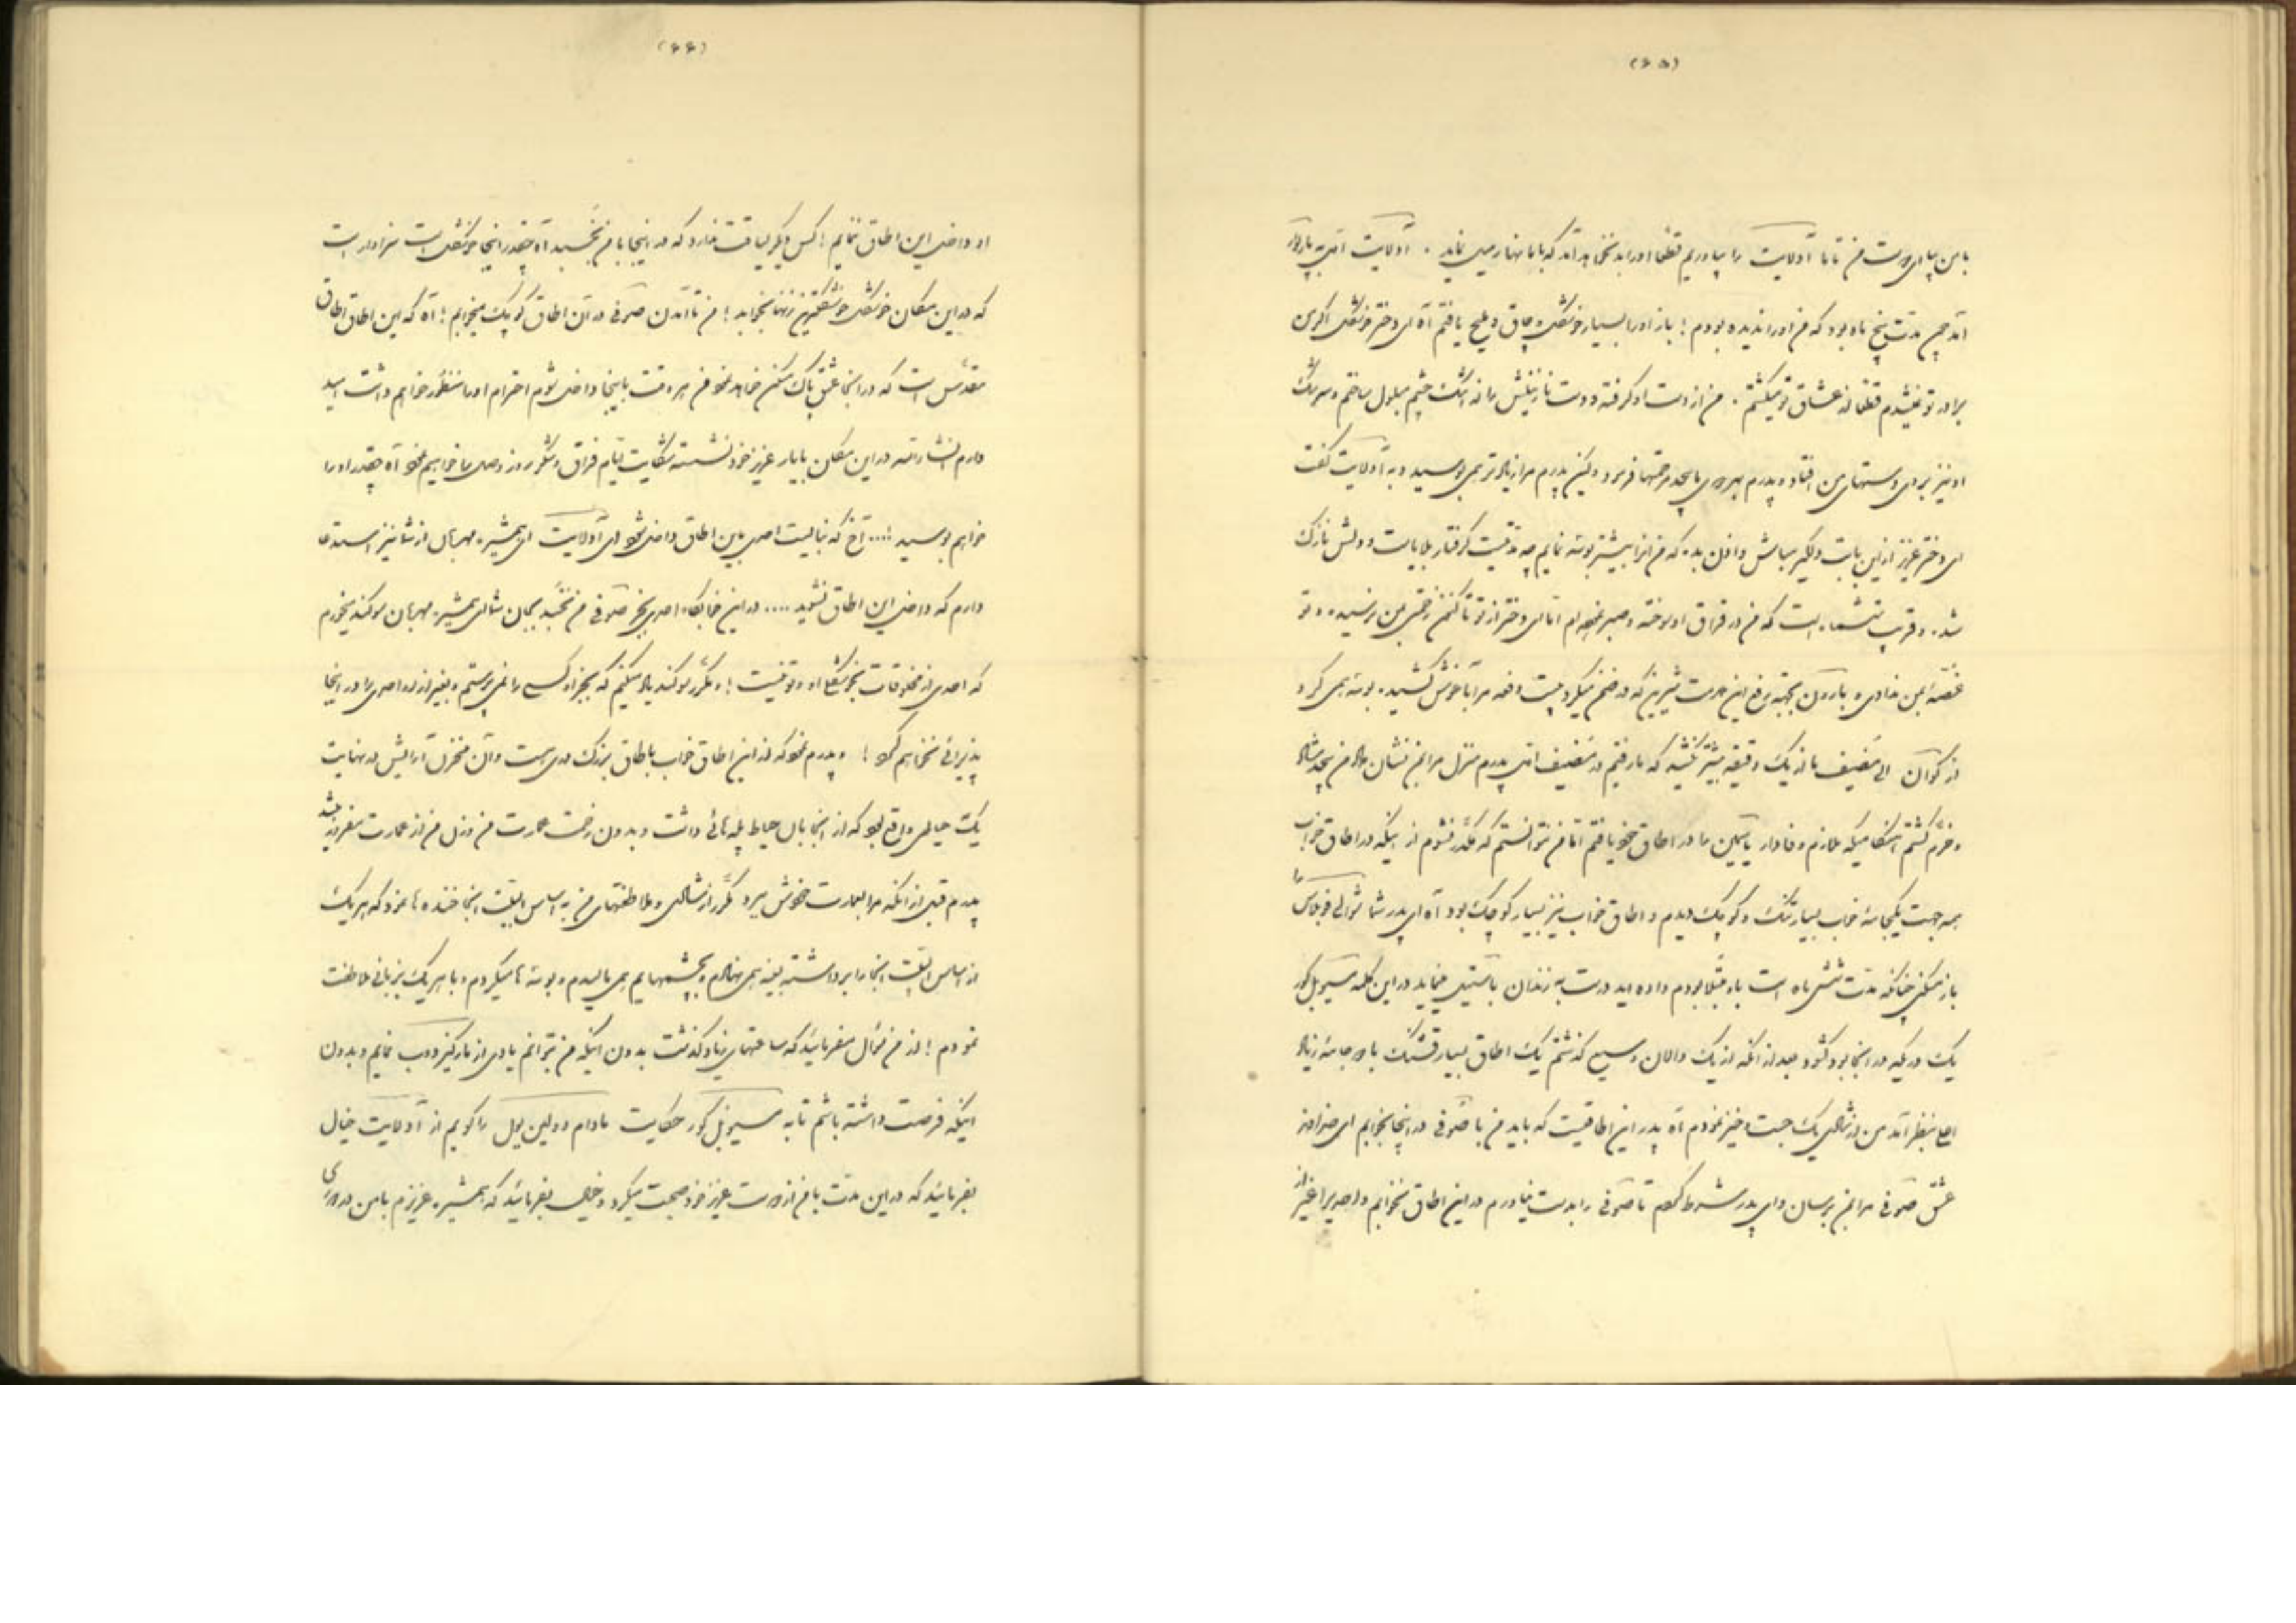 (۶۵)
با من بیا ای دوست من تا ما آدلایت را بیاوریم قطعا او را بد نخواهد آمد که با ما نهار میل نماید . آدلایت
آمد چون مدت پنج ماه بود که من او را ندیده بودم ! باز او را بسیار خوشگل و چاق و ملیح یافتم آه ای دختر خوشگل اگر من
برادر تو نمیشدم قطعا از عشاق تو میگشتم . من از دست او گرفته و دست نازنینش را از اشک چشم مبلول ساختم و سرشک
او نیز بروی دستهای من افتاد و پدرم بهر دوی ما بیحد مرحمتها فرمود ولیکن پدرم مرا زیادتر همی بوسید و به آدلایت گفت
ای دختر عزیز از این بابت دلگیر مباش و اذن بده که من او را بیشتر بوسه نمایم چه مدتیست گرفتار بلایا است و دلش نازک
شده و قریب شش ماه است که من در فراق او سوخته و صبر نموده ام اما ای دختر از تو تا کنون زحمتی بمن نرسیده و تو
غصه بمن ندادی و بارون بجهت رفع این حدت شیرین که در ضمن میگرد بیست دفعه مرا بآغوش کشیده بوسه همی کرد و
از کوآن الی مضیف ما از یک دقیقه بیشتر نکشید که ما رفتیم در مضیف پدرم منزل مرا بمن نشان داد من بیحد شاد
و خرم گشتم هنگامیکه ملازم وفادار یاسمین را در اطاق خود یافتم اما من نتوانستم که مکدر نشوم از اینکه در اطاق خواب
همه جهت یکجامهٔ خواب بسیار تنگ و کوچک دیدم و اطاق خواب نیز بسیار کوچک بود آه ای پدر شما
باز میکنی چنانکه مدت شش ماه است باو مبتلا بودم داده اید درست به زندان باستیل مینماید در این کلمه مسیو بل کور
یک در یکه در آنجا بود گشود بعد از آنکه از یک دالان وسیع گذشتم یک اطاق بسیار قشنگ با دو جامهٔ زیاد
بنظر آمد من از شادی یک جست و خیز نمودم آه پدر این اطاقیست که باید من با صوفی در اینجا بخوابم ای خداوند
عشق صوفی مرا بمن برسان و ای پدر شرط کردم تا صوفی را بدست نیاورم در این اطاق نخوابم و احدی را غیر از
(۶۶)
او داخل این اطاق ننمایم ! کس دیگر لیاقت ندارد که در اینجا با من بخسبد آه چقدر اینجا خوشگل است سزاوار است
که در این مکان خوشگل خوشگلترین زنها بخوابد ! من تا آمدن صوفی در آن اطاق کوچک میخوابم ! آه که این اطاق اطاق
مقدس است که در اینجا عشق پاک مسکن خواهد نمود من هر وقت باینجا داخل شوم احترام او را منظور خواهم داشت امید
دارم انشاءالله در این مکان با یار عزیز خود نشسته شکایت ایام فراق و شکر روز وصل را خواهیم نمود آه چقدر او را
خواهم بوسید !.... آخ که نبایست احدی باین اطاق داخل شود ای آدلایت ای همشیرهٔ مهربان از شما نیز استدعا
دارم که داخل این اطاق نشوید .... در این خوابگاه احدی بجز صوفی من نخسبد بجان شما ای همشیرهٔ مهربان سوگند میخورم
که احدی از مخلوقات بخوشگلی او و تو نیست ! و مکرر سوگند یاد میکنم که بجز او کسی را نمی پرستم و بغیر از او احدی را در اینجا
پذیرائی نخواهم کرد ! و پدرم نمود که از این اطاق خواب باطاق بزرگ دری هست و آن منزل آرایش در نهایت
یک حیاطی واقع بود که از آنجا بآن حیاط پله هائی داشت و بدون زحمت عمارت من و منزل من از عمارت مفروز میشد
پدرم قبل از آنکه مرا بعمارت خودش ببرد مکرر از شادی و ملاطفتهای من به اساس البیت اینجا خنده ها نمود که هر یک
از اساس البیت اینجا را برداشته بسینه همی نهادم و بچشمهایم همی مالیدم و بوسه ها میکردم و با هر یک بزبانی ملاطفت
نمودم ! از من سؤال بفرمائید که ساعتهای زیاد گذشت بدون اینکه من بتوانم یادی از مارکیز دوب نمایم و بدون
اینکه فرصت داشته باشم تا به مسیو بل کور حکایت مادام دولین بول را گویم از آدلایت خیال
بفرمائید که در این مدت با من از دوست عزیز خود صحبت میکرد و خیال بفرمائید که همشیرهٔ عزیزم با من